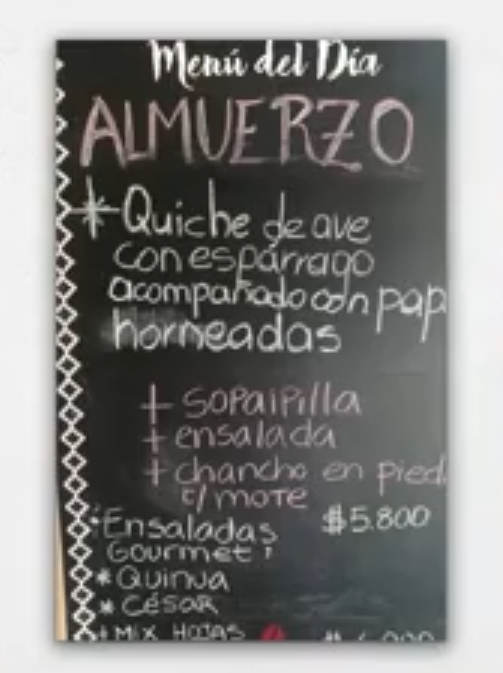 Menú del Día
ALMUERZO
* Quiche de ave
con espárrago
acompañado con pap
horneadas
+ sopaipilla
+ ensalada
+ chancho en pied
c/ mote
$5.800
*Ensaladas
Gourmet:
* Quinua
* César
+ MIX HOJAS